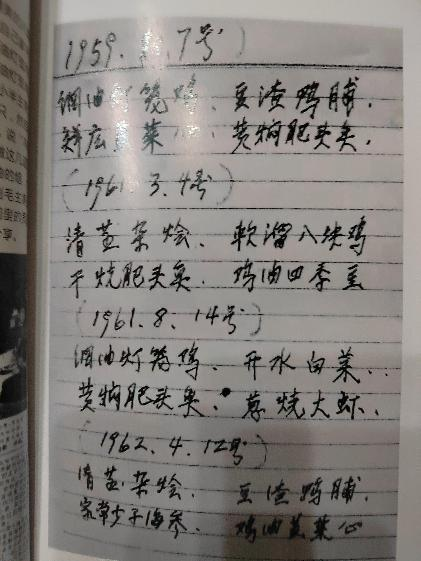 1959. 7号)
网油灯笼鸡、豆渣鸭脯.
鲜 菜心 黄焖肥头鱼.
(1961.3.4号)
清蒸杂烩、軟溜八块鸡
干烧肥头鱼、鸡油四季豆
(1961.8.14号)
网油灯笼鸡、开水白菜..
黄焖肥头鱼. 葱烧大虾.
(1962.4.12号)
清蒸杂烩、豆渣鸭脯.
家常少子海参、鸡油 菜心